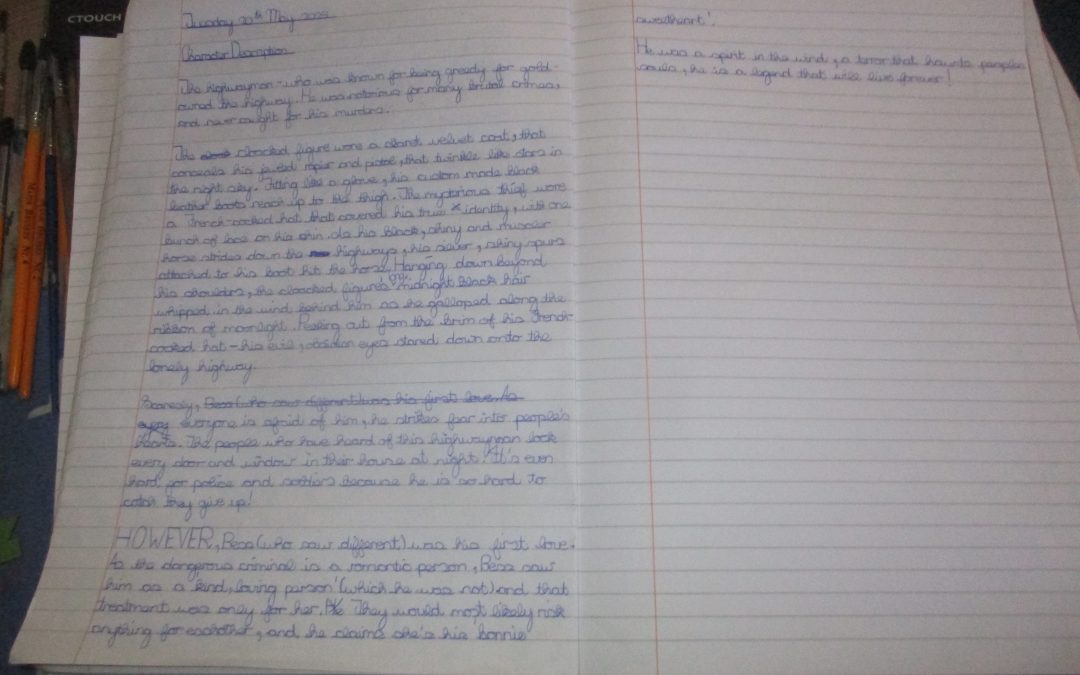 CTOUCH
Tuesday 20th May 2025
Character Description
The highwayman - who was known for being greedy for gold -
owned the highway. He was notorious for many brutal crimes,
and never caught for his murders.
The cloacked figure wore a claret velvet coat, that
conceals his jewled rapier and pistol, that twinkle like stars in
the night sky. Fitting like a glove, his custom made black
leather boots reach up to the thigh. The mysterious thief wore
a French-cocked hat that covered his true identity, with one
bunch of lace on his chin. As his black, shiny and musceler
horse strides down the highways, his silver, shiny spurs
attached to his boot hit the horse. Hanging down beyond
his shoulders, the cloacked figure's midnight black hair
whipped in the wind behind him as he galloped along the
ribbon of moonlight. Peeling out from the brim of his French-
cocked hat - his evil, obsidian eyes stared down onto the
lonely highway.
Scarcely, Bess (who saw different) was his first love. As
everyone is afraid of him, he strikes fear into people's
hearts. The people who have heard of this highwayman lock
every door and window in their house at night! It's even
hard for police and soldiers because he is so hard to
catch they give up!
HOWEVER, Bess (who saw different) was his first love.
As the dangerous criminal is a romantic person, Bess saw
him as a kind, loving person (which he was not) and that
treatment was only for her. They would most likely risk
anything for eachother, and he claims she's his 'bonnie
sweetheart'.
He was a spirit in the wind, a terror that haunts peoples
souls, he is a legend that will live forever!